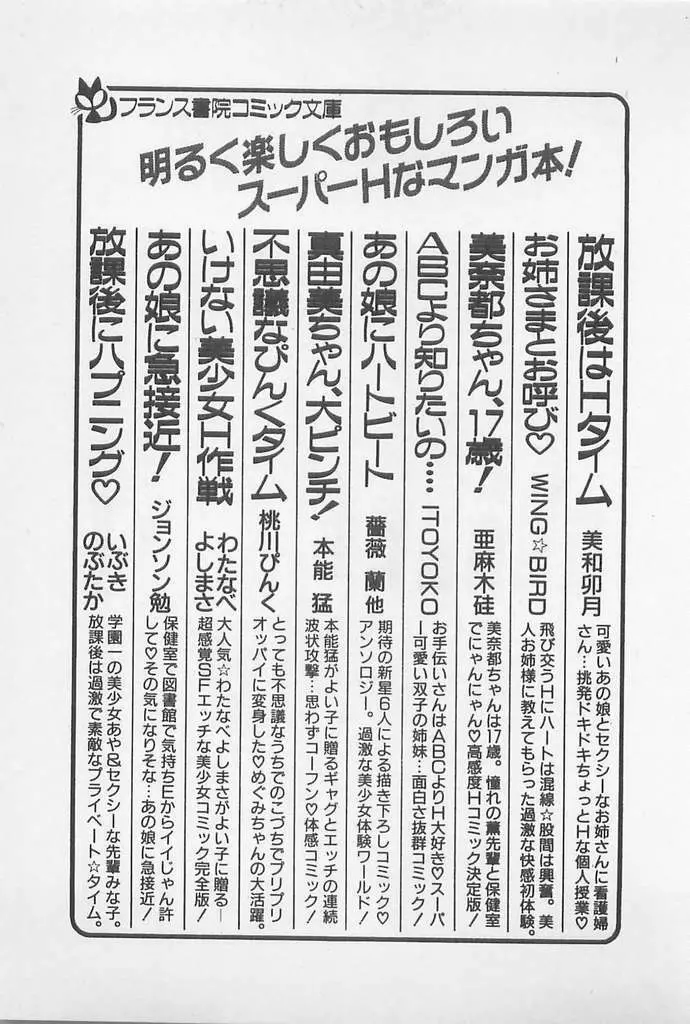 フランス書院コミック文庫
明るく楽しくおもしろい
スーパーHなマンガ本!
放課後はHタイム 美和卯月
可愛いあの娘とセクシーなお姉さんに看護婦
さん…挑発ドキドキちょっとHな個人授業♡
お姉さまとお呼び♡ WING☆BIRD
飛び交うHにハートは混線☆股間は興奮。美
人お姉様に教えてもらった過激な快感初体験。
美奈都ちゃん、17歳! 亜麻木硅
美奈都ちゃんは17歳。憧れの薫先輩と保健室
でにゃんにゃん♡高感度Hコミック決定版!
ABCより知りたいの…… ITOYOKO
お手伝いさんはABCよりH大好き♡スーパ
ー可愛い双子の姉妹…面白さ抜群コミック!
あの娘にハートビート 薔薇 蘭他
期待の新星6人による描き下ろしコミック♡
アンソロジー。過激な美少女体験ワールド!
真由美ちゃん、大ピンチ! 本能 猛
本能猛がよい子に贈るギャグとエッチの連続
波状攻撃…思わずコーフン♡体感コミック!
不思議なぴんくタイム 桃川ぴんく
とっても不思議なうちでのこづちでプリプリ
オッパイに変身した♡めぐみちゃんの大活躍。
いけない美少女H作戦 わたなべよしまさ
大人気☆わたなべよしまさがよい子に贈る―
超感覚SFエッチな美少女コミック完全版!
あの娘に急接近! ジョンソン勉
保健室で図書館で気持ちEからイイじゃん許
して♡その気になりそな…あの娘に急接近!
放課後にハプニング♡ いぶきのぶたか
学園一の美少女あや&セクシーな先輩みな子。
放課後は過激で素敵なプライベート☆タイム。